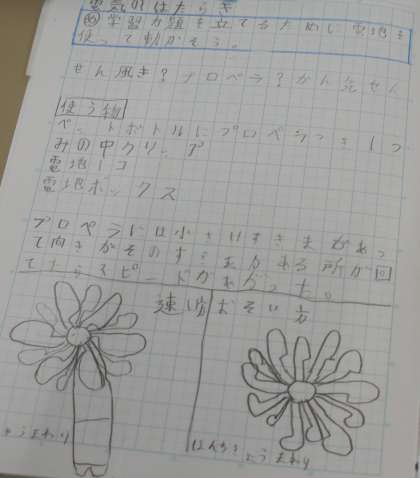 電気のはたらき
め 学習力題を立てるために電池を
使って動かそう。
せん風き?プロペラ?かん気せん
使う物
ペットボトルに プロペラつき 1つ
みの中クリップ
電池1コ
電池ボックス
プロペラには小さいすきまがあっ
て向きがそのすきまがある所が回
てたらスピードがあがった。
速い方 おそい方
とうまわり
はんたいとうまわり